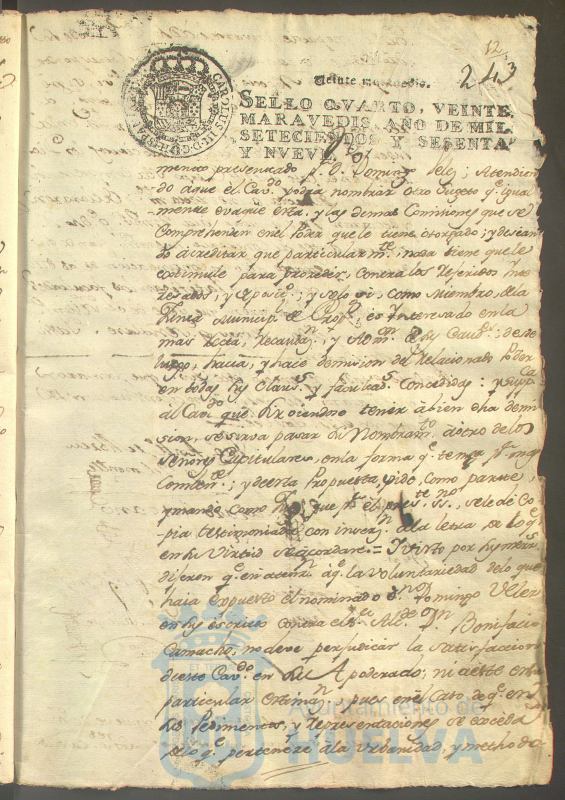 12
243
CAROLUS III D G HISPAN
Veinte maravedis.
SELLO QVARTO, VEINTE
MARAVEDIS, AÑO DE MIL
SETECIENTOS Y SESENTA
Y NVEVE.
mente presentado pr Dn Domingo Velez; Atendien
do aque el Cavdo podra nombrar otro Sugeto qe igual
mente evaque esta, y las demas Comisiones que se
comprehenden en el Poder que le tiene otorgado; y desean
do acreditar que particularmte nada tiene que le
estimule para proceder, contra los referidos
y solo si, como Miembro, dela
Junta Municipl de Propos, es Interesado en la
mas recta, recaudn y Admon de sus Caudas: desde
luego, hacia, y hace demision del Relacionado Poder
en todas sus Clauss y facultads concedidas: y suplica
al Cavdo que sirviendose tener à bien dha demi
sion, se sirva pasar su Nombramto à otro delos
Señores Capitulares, en la forma qe tenga pr mas
combente; y desta Propuesta, pide como parte,
y manda como que pr el preste Sno, sele de Co
pia testimoniada con inserzn ala letra de lo qe
en su Virtud se acordare. = Y visto por sus mrds
dijeron qe en atenn à qe la Voluntariedad delo que
haia expuesto el nominado Dn Domingo Velez
en su escrito contra el Sr Dn Bonifacio
Camacho, no deve perjudicar la satisfaccion
deeste Cavdo en su Apoderado; ni aeste en su
particular estimazn pues en el Caso de qe en
los Pedimentos, y Representaciones se exceda
delo qe pertenece ala Urbanidad, y methodo
Ayuntamiento de
HUELVA